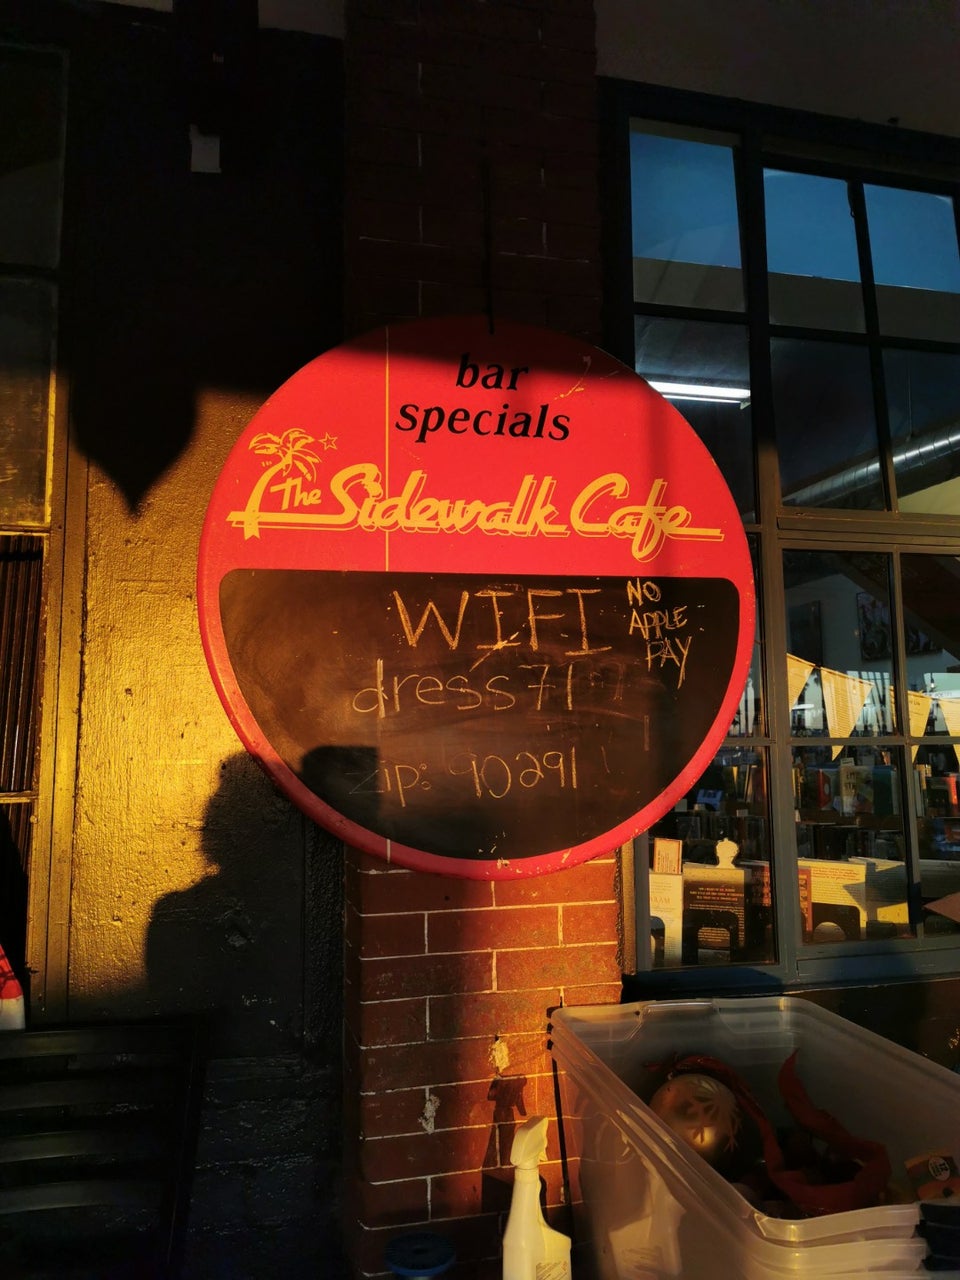 bar
specials
The Sidewalk Cafe
WIFI
NO
APPLE
PAY
dress71
zip: 90291